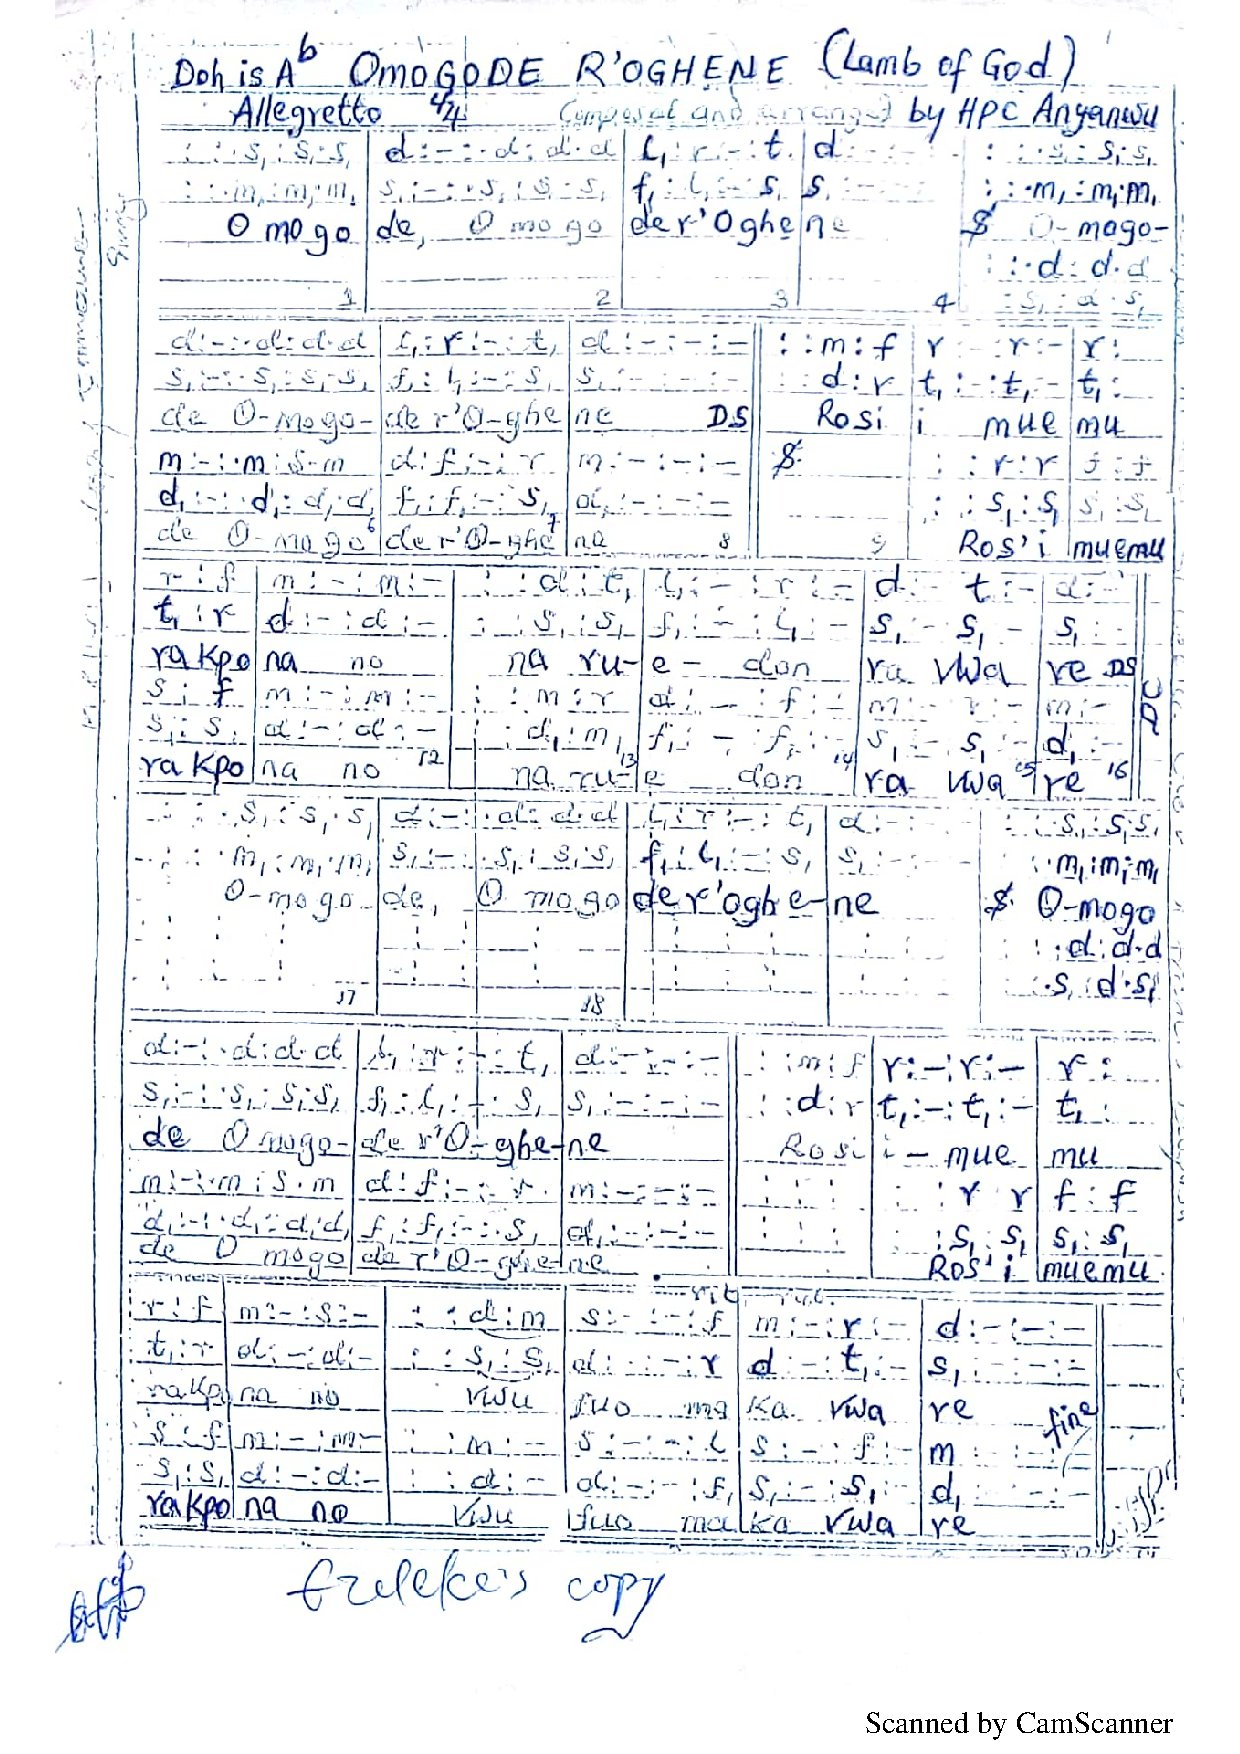 Doh is Ab OMOGODE R'OGHENE (Lamb of God)
Allegretto 4/4 Composed and arranged by HPC Anyanwu
: : ·s, : s, · s, | d : - : · d : d · d | l, : r : - : t, | d : - : - : - | : : · s, : s, · s,
: : · m, : m, · m, | s, : - : · s, : s, · s, | f, : l, : - : s, | s, : - : - : - | : : · m, : m, · m,
O mogo de, O mogo der'Oghene $ O-mogo-
: : · d : d · d
1 2 3 4 : s, : d · s,
d : - : · d : d · d | l, : r : - : t, | d : - : - : - | : : m : f | r : - : r : - | r :
s, : - : · s, : s, · s, | f, : l, : - : s, | s, : - : - : - | : : d : r | t, : - : t, : - | t, :
de O-mogo-de r'O-ghe ne DS Rosi i mue mu
m : - : · m : s · m | d : f : - : r | m : - : - : - | $ | : : r : r | f : f
d, : - : · d, : d, · d, | f, : f, : - : s, | d, : - : - : - | : : s, : s, | s, : s,
de O-mogo 6 der'O-ghe 7 ne 8 9 Ros'i muemu
r : f | m : - : m : - | : : d : t, | l, : - : r : - | d : - t, : - | d : -
t, : r | d : - : d : - | : : s, : s, | f, : - : l, : - | s, : - s, - | s, : -
rakpo na no na ru-e - don ra vwa re DS
s : f | m : - : m : - | : : m : r | d : - : f : - | m : - r : - | m : -
s, : s, | d : - : d : - | : d, : m, | f, : - : f, : - | s, : - s, : - | d, : -
DC
rakpo na no 12 na ru-e 13 don 14 ra vwa 15 re 16
: : · s, : s, · s, | d : - : · d : d · d | l, : r : - : t, | d : - : - | : : · s, : s, · s,
: : · m, : m, · m, | s, : - : · s, : s, · s, | f, : l, : - : s, | s, : - : - | : : · m, : m, · m,
O-mogo de, O mogo der'oghe-ne $ O-mogo
: : · d : d · d
: · s, : d · s,
17 18
d : - : · d : d · d | l, : r : - : t, | d : - : - : - | : : m : f | r : - : r : - | r :
s, : - : · s, : s, · s, | f, : l, : - : s, | s, : - : - : - | : : d : r | t, : - : t, : - | t, :
de O mogo-de r'O-ghe-ne Rosi i - mue mu
m : - : · m : s · m | d : f : - : r | m : - : - : - | : : r r | f : f
d, : - : · d, : d, · d, | f, : f, : - : s, | d, : - : - : - | : s, : s, | s, : s,
de O mogo de r'O-ghe-ne Ros'i muemu
rit
r : f | m : - : s : - | : : d : m | s : - : - : f | m : - : r : - | d : - : - : -
t, : r | d : - : d : - | : : s, : s, | d : - : - : r | d : - : t, : - | s, : - : - : -
rakpo na no vwu fuo ma ka vwa re
fine
s : f | m : - : m : - | : : m : - | s : - : - : l | s : - : f : - | m : - : - : -
s, : s, | d : - : d : - | : : d : - | d : - : - : f, | s, : - : s, : - | d, : - : - : -
rakpo na no vwu fuo ma ka vwa re
copy
Scanned by CamScanner